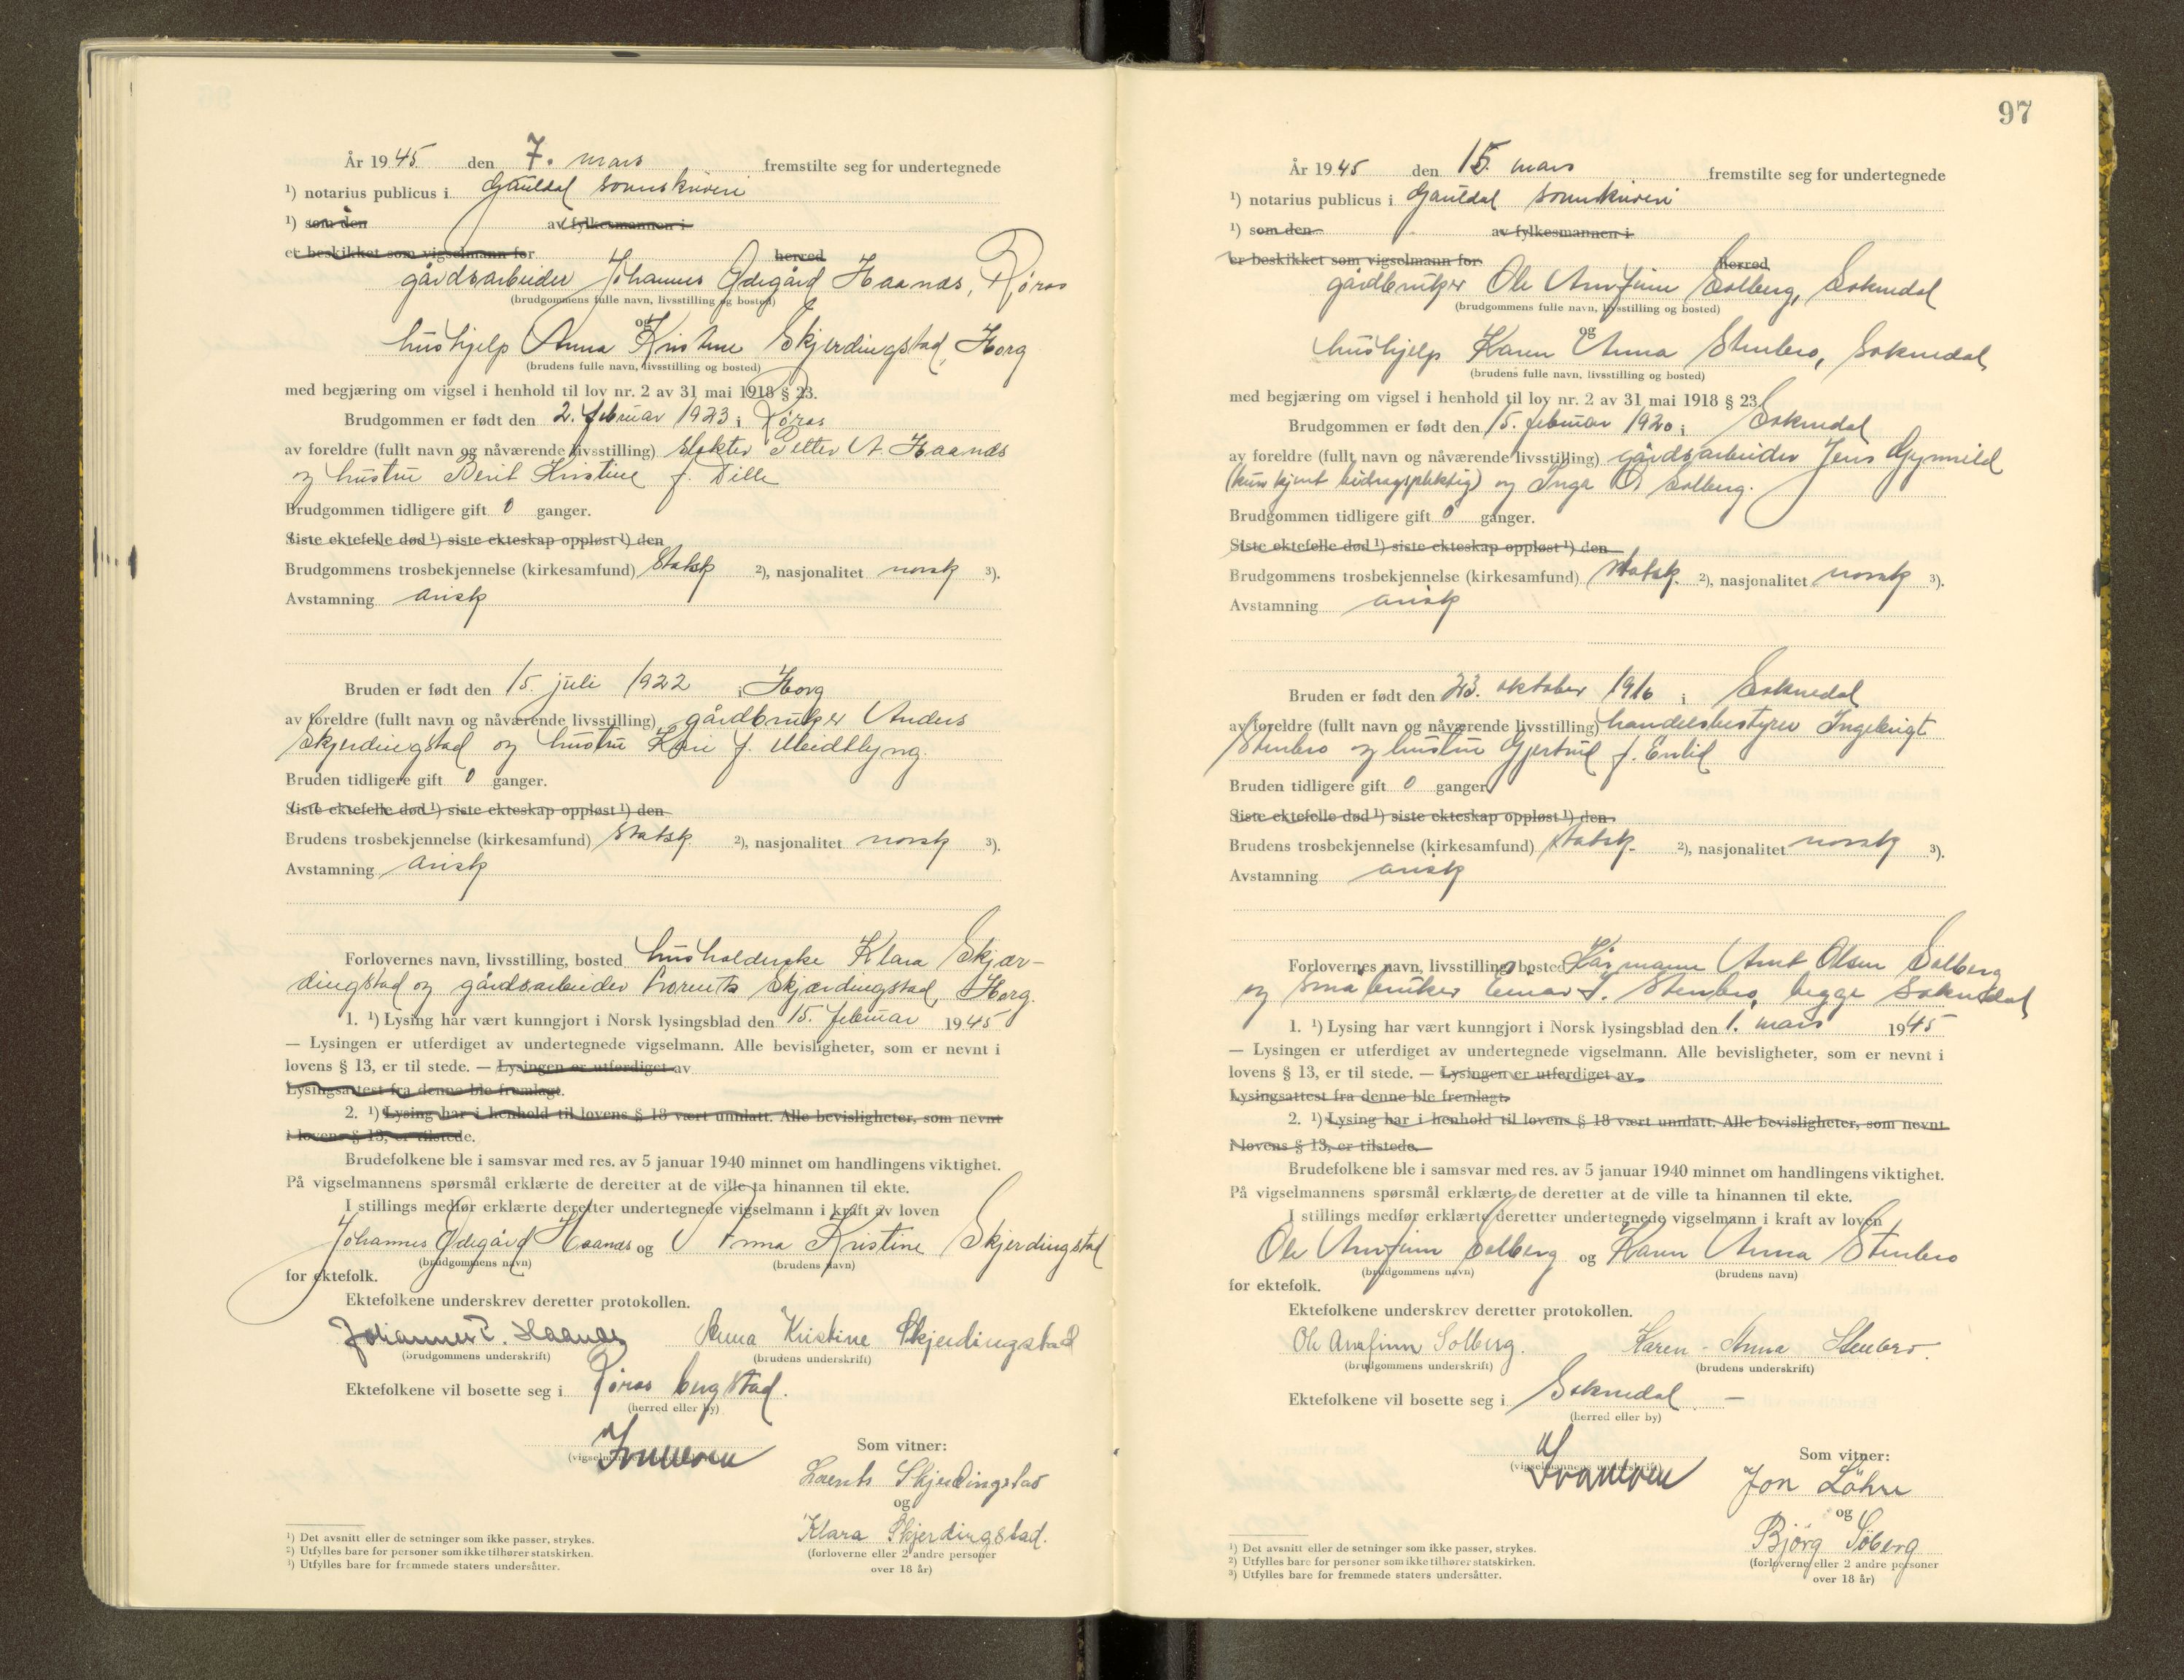 År 1945 den 7. mars fremstilte seg for undertegnede
¹) notarius publicus i Gauldal sorenskriveri
¹) som den av fylkesmannen i
er beskikket som vigselmann for herred
gårdsarbeider Johannes Ødegård Haanæs, Røros
(brudgommens fulle navn, livsstilling og bosted)
og
hushjelp Anna Kristine Skjerdingstad, Horg
(brudens fulle navn, livsstilling og bosted)
med begjæring om vigsel i henhold til lov nr. 2 av 31 mai 1918 § 23.
Brudgommen er født den 2. februar 1923 i Røros
av foreldre (fullt navn og nåværende livsstilling) slakter Petter A Haanæs
og hustru Berit Kristine f. Tille
Brudgommen tidligere gift 0 ganger.
Siste ektefelle død ¹) siste ekteskap oppløst ¹) den
Brudgommens trosbekjennelse (kirkesamfund) statsk ²), nasjonalitet norsk ³).
Avstamning arisk
Bruden er født den 15. juli 1922 i Horg
av foreldre (fullt navn og nåværende livsstilling) gårdbruker Anders
Skjerdingstad og hustru Kari f. Meidtlyng.
Bruden tidligere gift 0 ganger.
Siste ektefelle død ¹) siste ekteskap oppløst ¹) den
Brudens trosbekjennelse (kirkesamfund) statsk. ²), nasjonalitet norsk ³).
Avstamning arisk
Forlovernes navn, livsstilling, bosted husholderske Klara Skjær-
dingstad og gårdsarbeider Lorents Skjærdingstad, Horg.
1. ¹) Lysing har vært kunngjort i Norsk lysingsblad den 15. februar 1945
— Lysingen er utferdiget av undertegnede vigselmann. Alle bevisligheter, som er nevnt i
lovens § 13, er til stede. — Lysingen er utferdiget av
Lysingsattest fra denne ble fremlagt.
2. ¹) Lysing har i henhold til lovens § 18 vært unnlatt. Alle bevisligheter, som nevnt
i lovens § 13, er tilstede.
Brudefolkene ble i samsvar med res. av 5 januar 1940 minnet om handlingens viktighet.
På vigselmannens spørsmål erklærte de deretter at de ville ta hinannen til ekte.
I stillings medfør erklærte deretter undertegnede vigselmann i kraft av loven
Johannes Ødegård Haanæs og Anna Kristine Skjerdingstad
(brudgommens navn) (brudens navn)
for ektefolk.
Ektefolkene underskrev deretter protokollen.
Johannes P. Haanæs Anna Kristine Skjerdingstad
(brudgommens underskrift) (brudens underskrift)
Ektefolkene vil bosette seg i Røros bergstad.
(herred eller by)
Som vitner:
Lorents Skjerdingstad
og
Klara Skjerdingstad.
(forloverne eller 2 andre personer
over 18 år)
¹) Det avsnitt eller de setninger som ikke passer, strykes.
²) Utfylles bare for personer som ikke tilhører statskirken.
³) Utfylles bare for fremmede staters undersåtter.
97
År 1945 den 15. mars fremstilte seg for undertegnede
¹) notarius publicus i Gauldal sorenskriveri
¹) som den av fylkesmannen i
er beskikket som vigselmann for herred
gårdbruker Ole Arnfinn Solberg, Soknedal
(brudgommens fulle navn, livsstilling og bosted)
og
hushjelp Karen Anna Stenbro, Soknedal
(brudens fulle navn, livsstilling og bosted)
med begjæring om vigsel i henhold til lov nr. 2 av 31 mai 1918 § 23.
Brudgommen er født den 15. februar 1920 i Soknedal
av foreldre (fullt navn og nåværende livsstilling) gårdsarbeider Jens Gynnild
(kun kjent bidragspliktig) og Inga O. Solberg.
Brudgommen tidligere gift 0 ganger.
Siste ektefelle død ¹) siste ekteskap oppløst ¹) den
Brudgommens trosbekjennelse (kirkesamfund) statsk. ²), nasjonalitet norsk ³).
Avstamning arisk
Bruden er født den 23. oktober 1916 i Soknedal
av foreldre (fullt navn og nåværende livsstilling) handelsbestyrer Ingebrigt
Stenbro og hustru Gjertrud f. Enlid
Bruden tidligere gift 0 ganger.
Siste ektefelle død ¹) siste ekteskap oppløst ¹) den
Brudens trosbekjennelse (kirkesamfund) statsk. ²), nasjonalitet norsk ³).
Avstamning arisk
Forlovernes navn, livsstilling, bosted Kårmann Arnt Olsen Solberg
og småbruker Einar I. Stenbro, begge Soknedal
1. ¹) Lysing har vært kunngjort i Norsk lysingsblad den 1. mars 1945
— Lysingen er utferdiget av undertegnede vigselmann. Alle bevisligheter, som er nevnt i
lovens § 13, er til stede. — Lysingen er utferdiget av
Lysingsattest fra denne ble fremlagt.
2. ¹) Lysing har i henhold til lovens § 18 vært unnlatt. Alle bevisligheter, som nevnt
i lovens § 13, er tilstede.
Brudefolkene ble i samsvar med res. av 5 januar 1940 minnet om handlingens viktighet.
På vigselmannens spørsmål erklærte de deretter at de ville ta hinannen til ekte.
I stillings medfør erklærte deretter undertegnede vigselmann i kraft av loven
Ole Arnfinn Solberg og Karen Anna Stenbro
(brudgommens navn) (brudens navn)
for ektefolk.
Ektefolkene underskrev deretter protokollen.
Ole Arnfinn Solberg. Karen - Anna Stenbro.
(brudgommens underskrift) (brudens underskrift)
Ektefolkene vil bosette seg i Soknedal —
(herred eller by)
(vigselmannens underskrift)
Som vitner:
Jon Løhre
og
Bjørg Søberg
(forloverne eller 2 andre personer
over 18 år)
¹) Det avsnitt eller de setninger som ikke passer, strykes.
²) Utfylles bare for personer som ikke tilhører statskirken.
³) Utfylles bare for fremmede staters undersåtter.